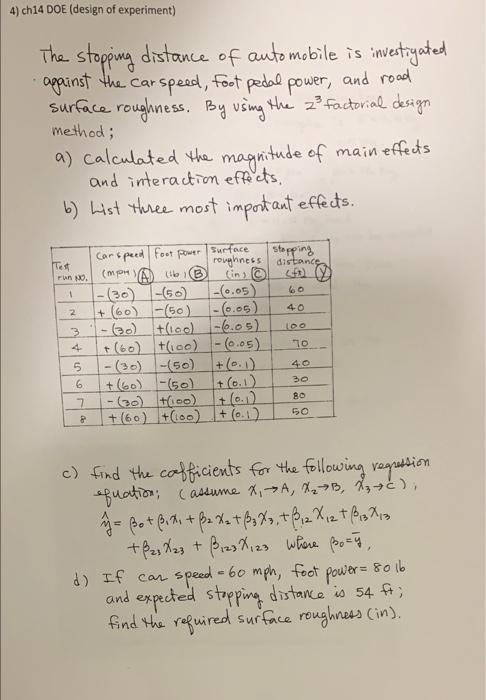 4) ch14 DOE (design of experiment)
The stopping distance of automobile is investigated
against the car speed, foot pedal power, and road
surface roughness. By using the 2³ factorial design
method;
a) calculated the magnitude of main effects
and interaction effects.
b) List three most important effects.
Test run NO. | Car speed (MPH) Ⓐ | Foot Power (lb) Ⓑ | Surface roughness (in) Ⓒ | Stopping distance (ft) Ⓨ
1 | -(30) | -(50) | -(0.05) | 60
2 | +(60) | -(50) | -(0.05) | 40
3 | -(30) | +(100) | -(0.05) | 100
4 | +(60) | +(100) | -(0.05) | 70
5 | -(30) | -(50) | +(0.1) | 40
6 | +(60) | -(50) | +(0.1) | 30
7 | -(30) | +(100) | +(0.1) | 80
8 | +(60) | +(100) | +(0.1) | 50
c) find the coefficients for the following regression
equation; (assume x₁→A, x₂→B, x₃→C);
ŷ = β₀ + β₁x₁ + β₂x₂ + β₃x₃, + β₁₂x₁₂ + β₁₃x₁₃
+ β₂₃x₂₃ + β₁₂₃x₁₂₃ where β₀=ȳ,
d) If car speed = 60 mph, foot power = 80 lb
and expected stopping distance is 54 ft;
find the required surface roughness (in).